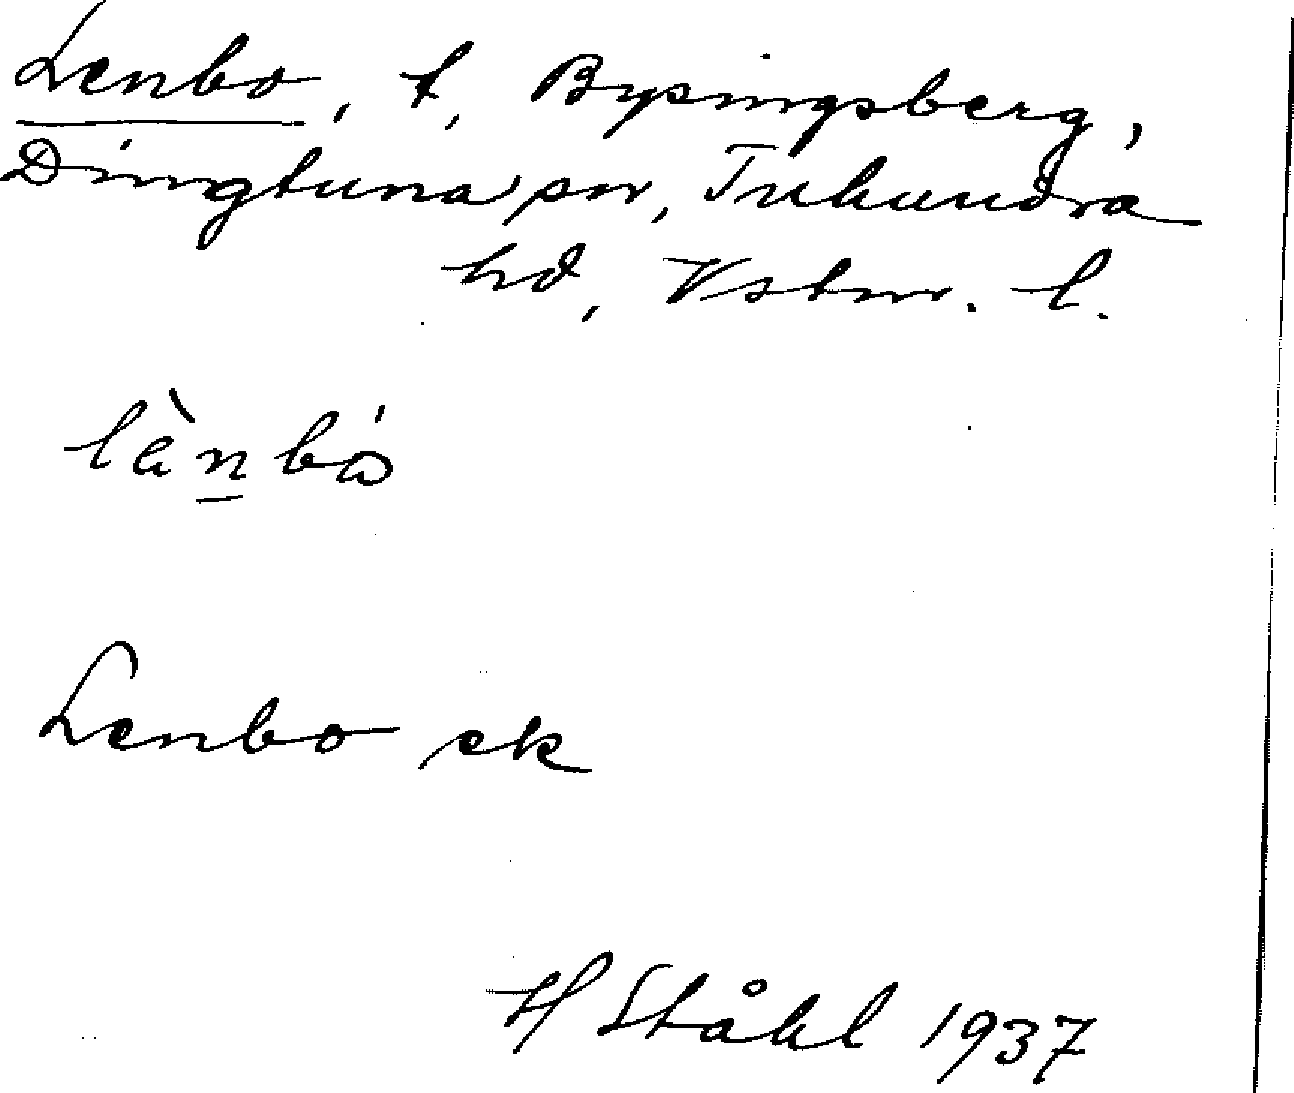 Lenbo, t, Bysingsberg,
Dingtuna sn, Tuhundra
hd, Vstm. l.
lènbó
Lenbo ek
H Ståhl 1937